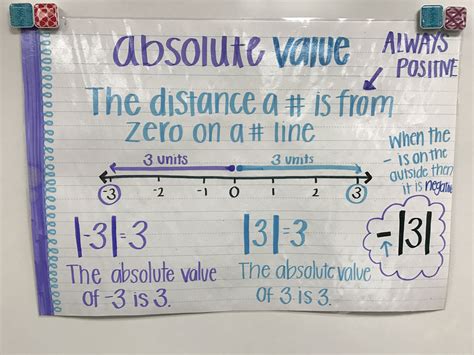 absolute value
ALWAYS
POSITIVE
The distance a # is from
zero on a # line
3 units 3 units
-3 -2 -1 0 1 2 3
When the
- is on the
outside then
it is negative
|-3|=3
|3|=3
-|3|
The absolute value
of -3 is 3.
The absolute value
Of 3 is 3.